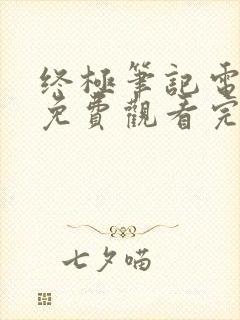 终極筆記電
免費觀看完
七夕喵